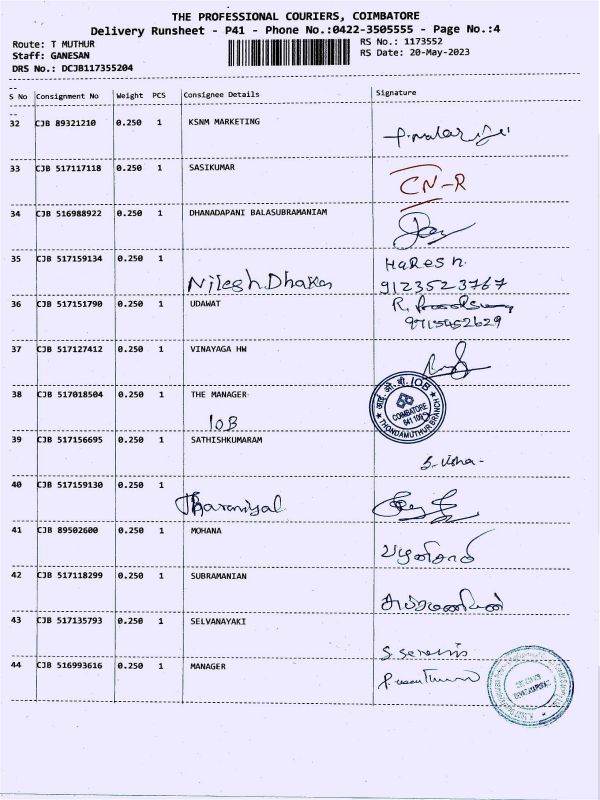 THE PROFESSIONAL COURIERS, COIMBATORE
Delivery Runsheet - P41 - Phone No.:0422-3505555 - Page No.:4
Route: T MUTHUR
RS No.: 1173552
Staff: GANESAN
RS Date: 20-May-2023
DRS No.: DCJB117355204
S No Consignment No Weight PCS Consignee Details Signature
32 CJB 89321210 0.250 1 KSNM MARKETING
33 CJB 517117118 0.250 1 SASIKUMAR
CN-R
34 CJB 516988922 0.250 1 DHANADAPANI BALASUBRAMANIAM
35 CJB 517159134 0.250 1 HaResh.
Nilesh.Dhaker 9123523767
36 CJB 517151790 0.250 1 UDAWAT R.
9715452629
37 CJB 517127412 0.250 1 VINAYAGA HW
38 CJB 517018504 0.250 1 THE MANAGER
IOB
आई. ओ. बी. IOB
COIMBATORE
THONDAMUTHUR BRANCH
39 CJB 517156695 0.250 1 SATHISHKUMARAM
S. Usha -
40 CJB 517159130 0.250 1
41 CJB 89502600 0.250 1 MOHANA
42 CJB 517118299 0.250 1 SUBRAMANIAN
சுப்ரமணியன்
43 CJB 517135793 0.250 1 SELVANAYAKI
44 CJB 516993616 0.250 1 MANAGER